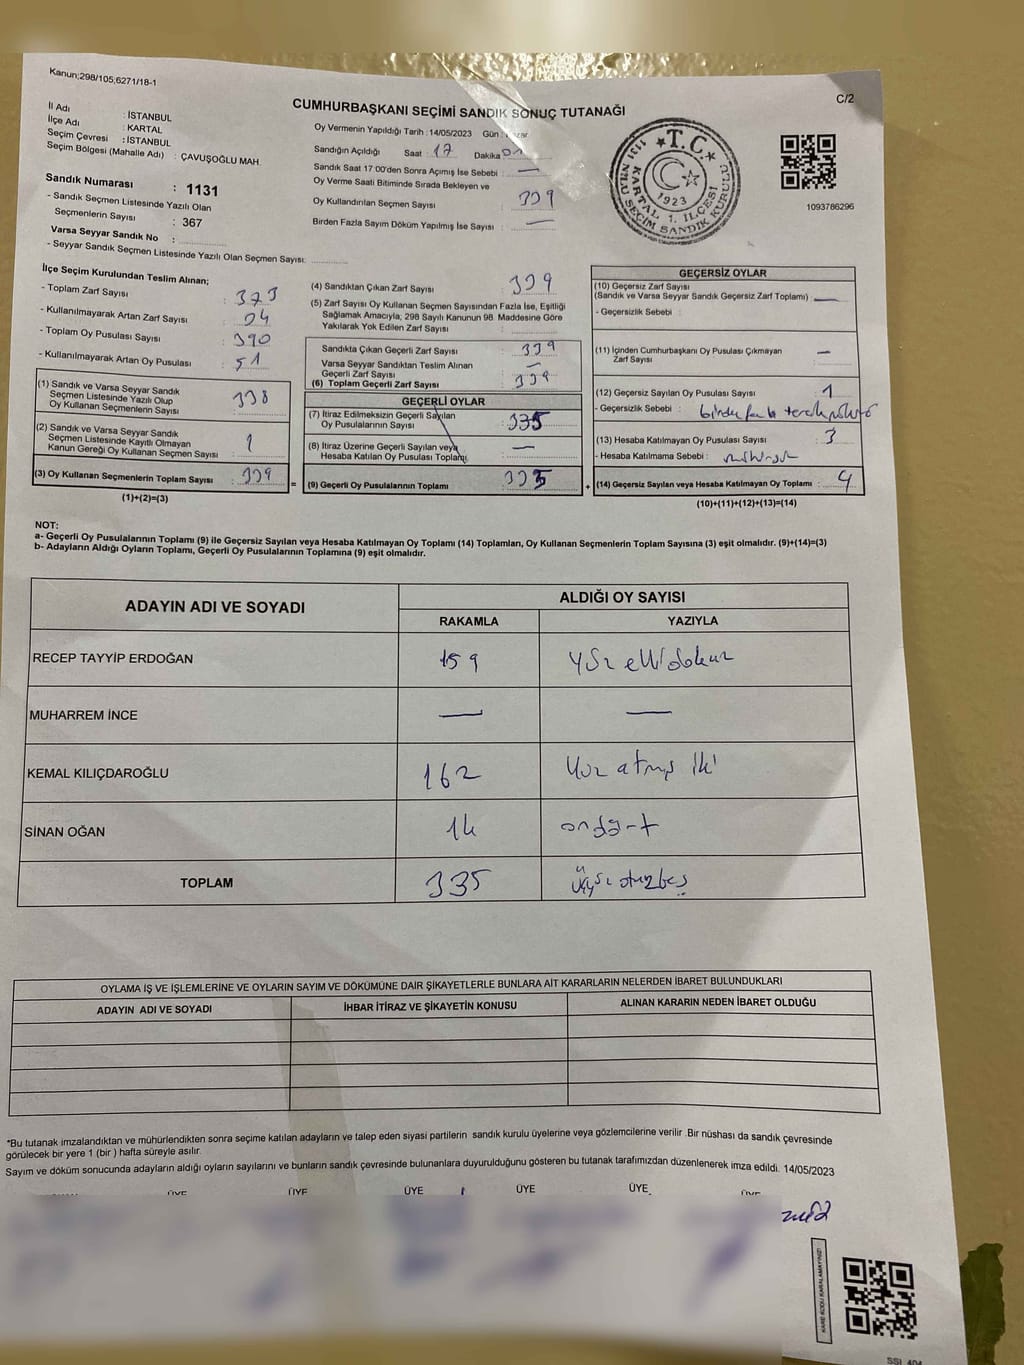 Kanun;298/105;6271/18-1
C/2
CUMHURBAŞKANI SEÇİMİ SANDIK SONUÇ TUTANAĞI
İl Adı : İSTANBUL
İlçe Adı : KARTAL
Seçim Çevresi : İSTANBUL
Seçim Bölgesi (Mahalle Adı) : ÇAVUŞOĞLU MAH.
Sandık Numarası : 1131
- Sandık Seçmen Listesinde Yazılı Olan
Seçmenlerin Sayısı : 367
Varsa Seyyar Sandık No :
- Seyyar Sandık Seçmen Listesinde Yazılı Olan Seçmen Sayısı:
Oy Vermenin Yapıldığı Tarih : 14/05/2023 Gün :
Sandığın Açıldığı Saat : 17 Dakika
Sandık Saat 17 00'den Sonra Açımış İse Sebebi : —
Oy Verme Saati Bitiminde Sırada Bekleyen ve
Oy Kullandırılan Seçmen Sayısı 339
Birden Fazla Sayım Döküm Yapılmış İse Sayısı : —
T.C.
1923
KARTAL 1. İLÇESİ
1131 NOLU SEÇİM SANDIK KURULU
1093786296
İlçe Seçim Kurulundan Teslim Alınan;
- Toplam Zarf Sayısı : 373
- Kullanılmayarak Artan Zarf Sayısı : 04
- Toplam Oy Pusulası Sayısı : 390
- Kullanılmayarak Artan Oy Pusulası : 51
(1) Sandık ve Varsa Seyyar Sandık
Seçmen Listesinde Yazılı Olup
Oy Kullanan Seçmenlerin Sayısı : 338
(2) Sandık ve Varsa Seyyar Sandık
Seçmen Listesinde Kayıtlı Olmayan
Kanun Gereği Oy Kullanan Seçmen Sayısı : 1
(3) Oy Kullanan Seçmenlerin Toplam Sayısı : 339
(1)+(2)=(3)
(4) Sandıktan Çıkan Zarf Sayısı : 339
(5) Zarf Sayısı Oy Kullanan Seçmen Sayısından Fazla İse, Eşitliği
Sağlamak Amacıyla; 298 Sayılı Kanunun 98. Maddesine Göre
Yakılarak Yok Edilen Zarf Sayısı :
Sandıkta Çıkan Geçerli Zarf Sayısı : 339
Varsa Seyyar Sandıktan Teslim Alınan
Geçerli Zarf Sayısı : —
(6) Toplam Geçerli Zarf Sayısı : 339
GEÇERLİ OYLAR
(7) İtiraz Edilmeksizin Geçerli Sayılan
Oy Pusulalarının Sayısı : 335
(8) İtiraz Üzerine Geçerli Sayılan veya
Hesaba Katılan Oy Pusulası Toplamı : —
(9) Geçerli Oy Pusulalarının Toplamı : 335
GEÇERSİZ OYLAR
(10) Geçersiz Zarf Sayısı
(Sandık ve Varsa Seyyar Sandık Geçersiz Zarf Toplamı) : —
- Geçersizlik Sebebi :
(11) İçinden Cumhurbaşkanı Oy Pusulası Çıkmayan
Zarf Sayısı : —
(12) Geçersiz Sayılan Oy Pusulası Sayısı : 1
- Geçersizlik Sebebi :
(13) Hesaba Katılmayan Oy Pusulası Sayısı : 3
- Hesaba Katılmama Sebebi :
(14) Geçersiz Sayılan veya Hesaba Katılmayan Oy Toplamı : 4
(10)+(11)+(12)+(13)=(14)
NOT:
a- Geçerli Oy Pusulalarının Toplamı (9) ile Geçersiz Sayılan veya Hesaba Katılmayan Oy Toplamı (14) Toplamları, Oy Kullanan Seçmenlerin Toplam Sayısına (3) eşit olmalıdır. (9)+(14)=(3)
b- Adayların Aldığı Oyların Toplamı, Geçerli Oy Pusulalarının Toplamına (9) eşit olmalıdır.
ADAYIN ADI VE SOYADI ALDIĞI OY SAYISI
RAKAMLA YAZIYLA
RECEP TAYYİP ERDOĞAN 159 yüz ellidokuz
MUHARREM İNCE — —
KEMAL KILIÇDAROĞLU 162 Yüz atmış iki
SİNAN OĞAN 14 ondört
TOPLAM 335 üçyüz otuzbeş
OYLAMA İŞ VE İŞLEMLERİNE VE OYLARIN SAYIM VE DÖKÜMÜNE DAİR ŞİKAYETLERLE BUNLARA AİT KARARLARIN NELERDEN İBARET BULUNDUKLARI
ADAYIN ADI VE SOYADI İHBAR İTİRAZ VE ŞİKAYETİN KONUSU ALINAN KARARIN NEDEN İBARET OLDUĞU
*Bu tutanak imzalandıktan ve mühürlendikten sonra seçime katılan adayların ve talep eden siyasi partilerin sandık kurulu üyelerine veya gözlemcilerine verilir .Bir nüshası da sandık çevresinde
görülecek bir yere 1 (bir ) hafta süreyle asılır.
Sayım ve döküm sonucunda adayların aldığı oyların sayılarını ve bunların sandık çevresinde bulunanlara duyurulduğunu gösteren bu tutanak tarafımızdan düzenlenerek imza edildi. 14/05/2023
ÜYE ÜYE ÜYE ÜYE ÜYE ÜYE
KARE KODU KARALAMAYINIZ!
SSI_404